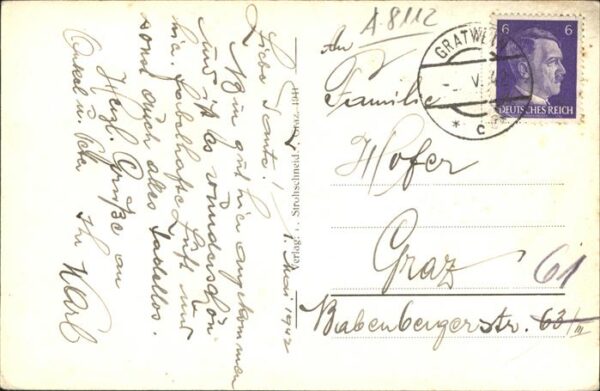 A-8112
An
Familie
Hofer
Graz
61
Babenbergerstr. 63/III
GRATWE
C
6 6
DEUTSCHES REICH
Verlag: Strohschneider, Graz
1. Mai 1942
Liebe Tante!
Bin gut hier angekommen
und ist es wunderschön
hier. Fabelhafte Luft und
sonst auch alles tadellos.
Herzl. Grüße an
Onkel u.
Ihr Karl